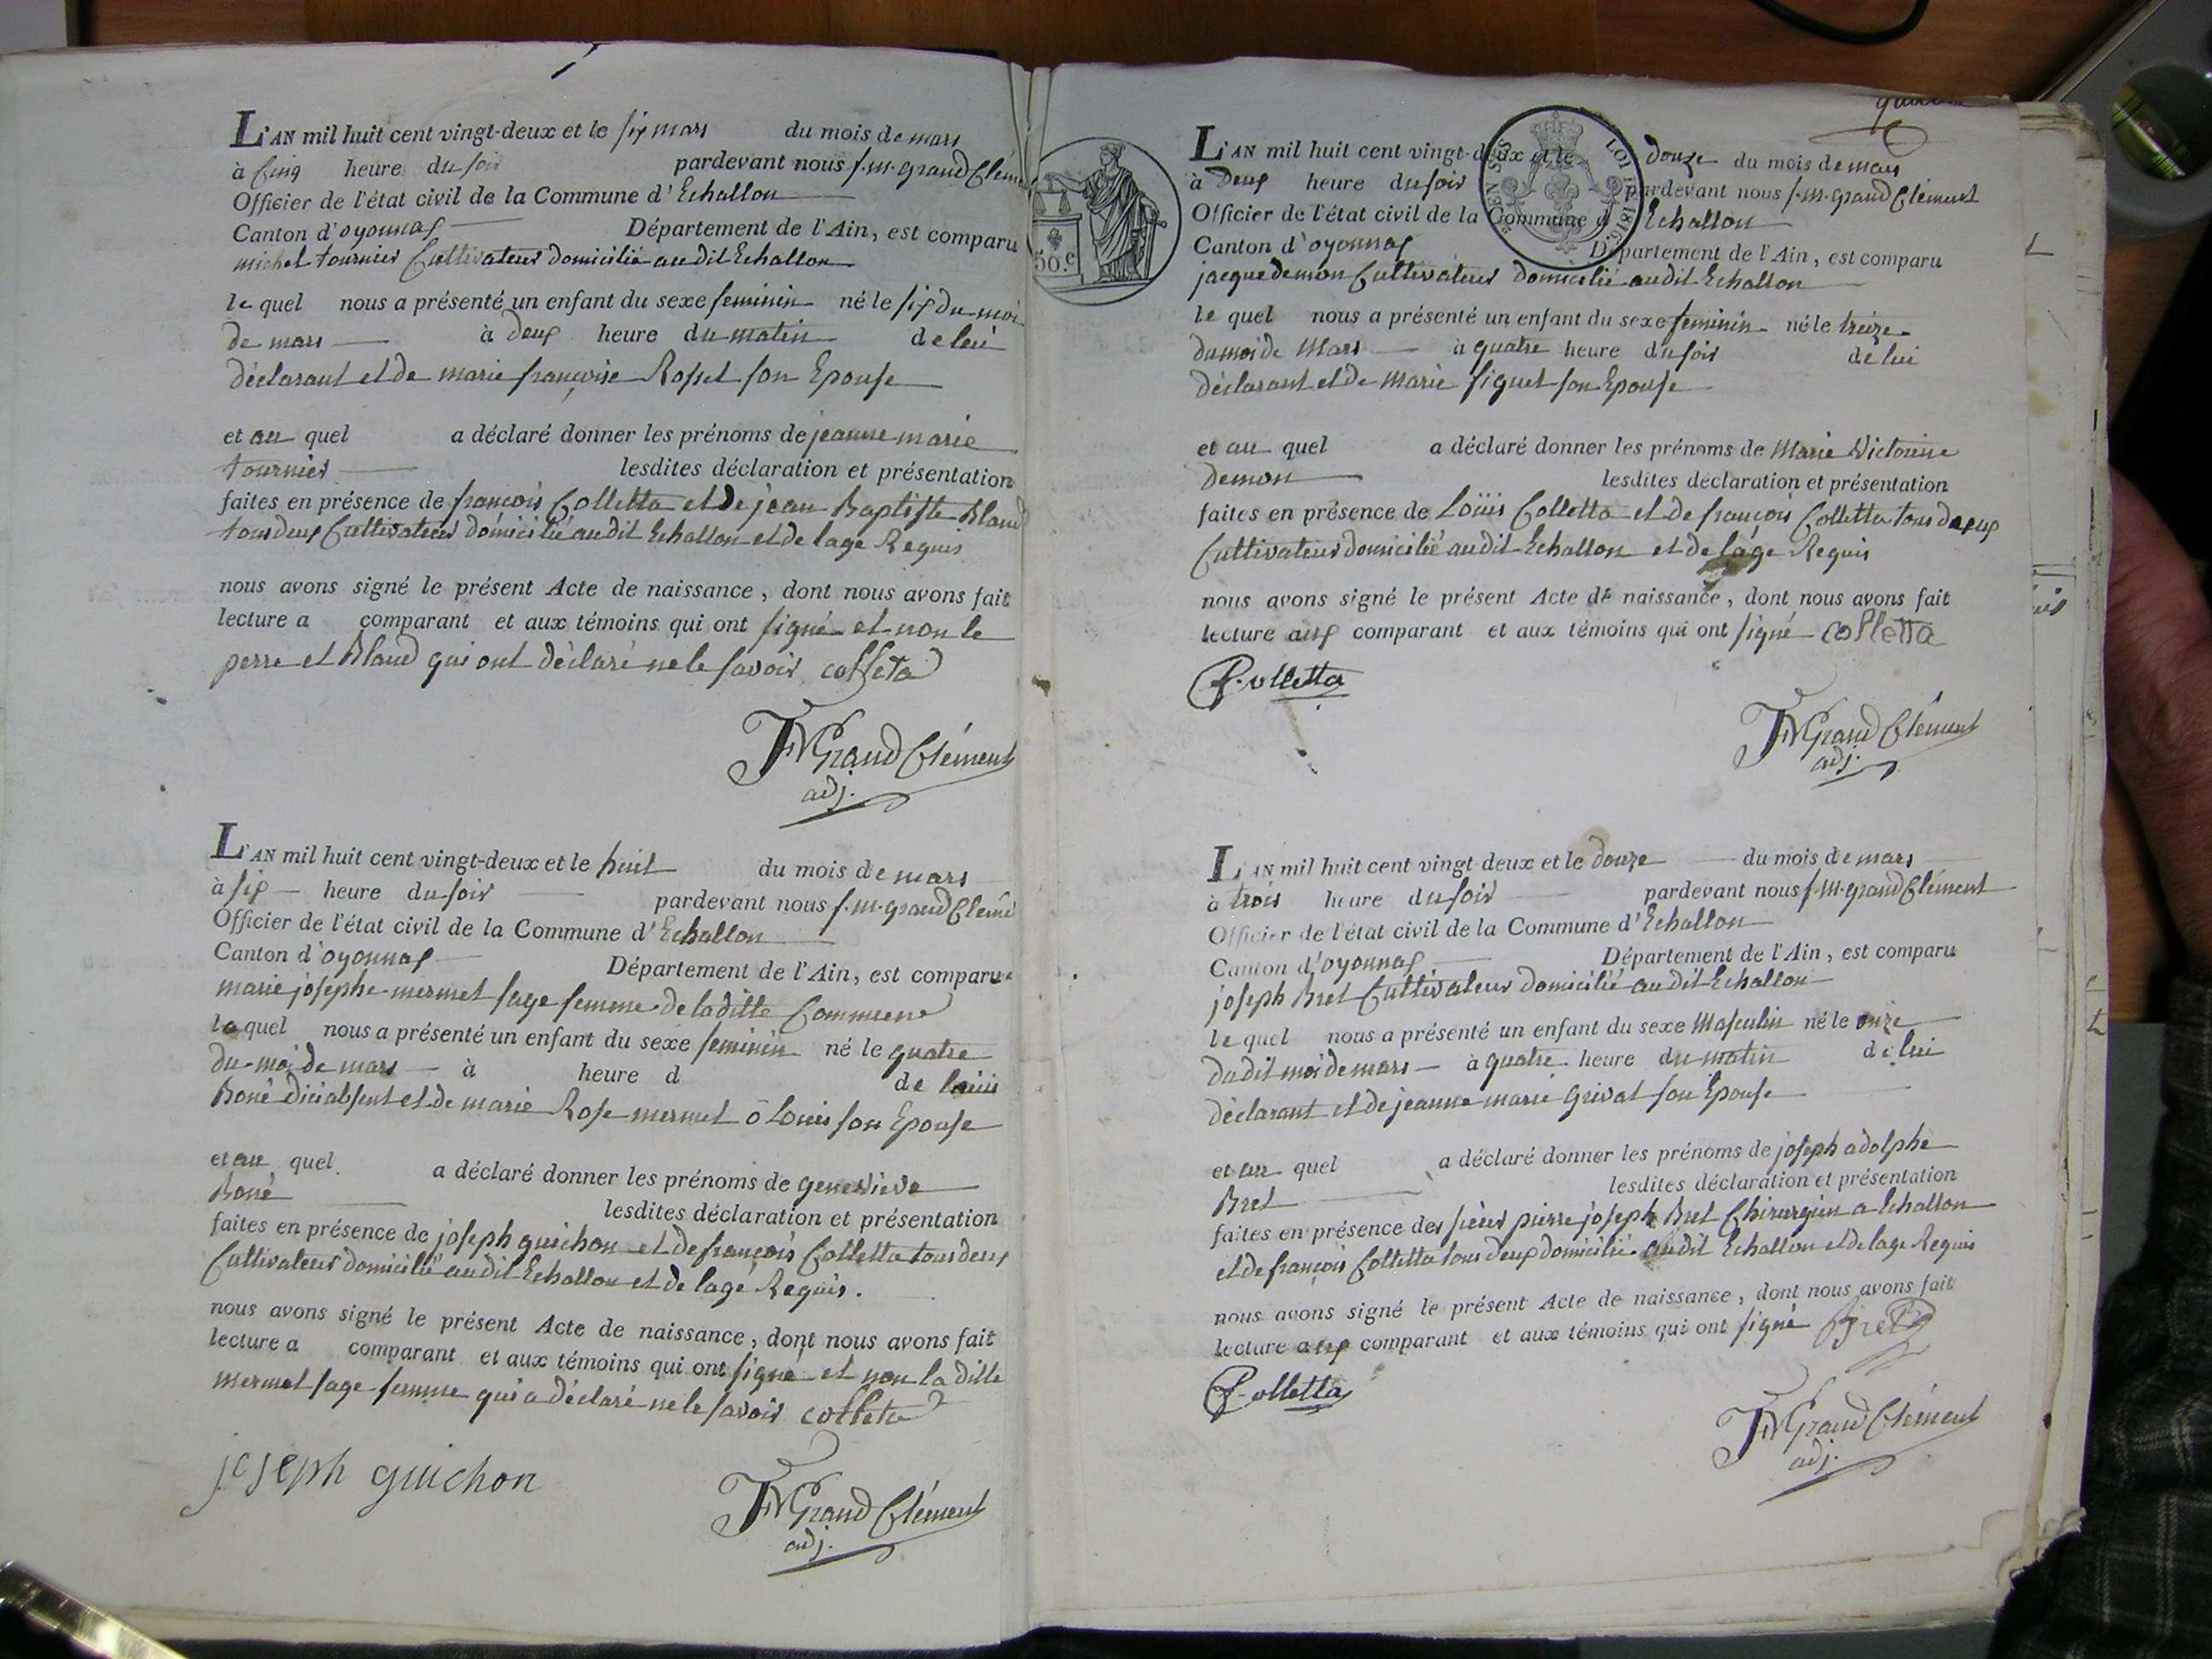 L'AN mil huit cent vingt-deux et le six mars du mois de mars
à Cinq heure du soir pardevant nous f. m. grand Cléme
Officier de l'état civil de la Commune d'Echallon
Canton d'oyonnax Département de l'Ain, est comparu
michel tournier Cultivateur domicilié audit Echallon
le quel nous a présenté un enfant du sexe feminin né le six du moi
de mars à deux heure du matin de lui
déclarant et de marie françoise Rosset son Epouse
et au quel a déclaré donner les prénoms de jeanne marie
tournier lesdites déclaration et présentation
faites en présence de françois Colletta et de jean Baptiste Bland
tous deux Cultivateur domicilié audit Echallon et de lage Requis
nous avons signé le présent Acte de naissance, dont nous avons fait
lecture a comparant et aux témoins qui ont signé et non le
perre et Bland qui ont déclaré ne le savoir colleta
Grand Clément
adj.
L'AN mil huit cent vingt-deux et le huit du mois de mars
à six heure du soir pardevant nous f. m. grand Clémē
Officier de l'état civil de la Commune d'Echallon
Canton d'oyonnax Département de l'Ain, est comparue
marie josephe mermet sage femme de laditte Commune
la quel nous a présenté un enfant du sexe feminin né le quatre
du moi de mars à heure d de louis
Boné diciabsent et de marie Rose mermet ō Louis son Epouse
et au quel a déclaré donner les prénoms de genevieve
Boné lesdites déclaration et présentation
faites en présence de joseph guichon et de françois Colletta tous deux
Cultivateur domicilié audit Echallon et de lagé Requis.
nous avons signé le présent Acte de naissance, dont nous avons fait
lecture a comparant et aux témoins qui ont signé et non la ditte
mermet sage femme qui a déclaré ne le savoir colleta
joseph guichon
Grand Clément
adj.
50.c
LOI DE 1816
L'AN mil huit cent vingt-deux et le douze du mois de mars
à deux heure du soir pardevant nous f. m. grand Clément
Officier de l'état civil de la Commune d'Echallon
Canton d'oyonnax Département de l'Ain, est comparu
jacque demon Cultivateur domicilié audit Echallon
le quel nous a présenté un enfant du sexe feminin né le treize
du moi de Mars à quatre heure du soir de lui
déclarant et de Marie figuet son Epouse
et au quel a déclaré donner les prénoms de Marie Victorine
demon lesdites déclaration et présentation
faites en présence de Loüis Colletta et de françois Colletta tous deux
Cultivateur domicilié audit Echallon et de lâge Requis
nous avons signé le présent Acte de naissance, dont nous avons fait
lecture aux comparant et aux témoins qui ont signé colletta
Colletta
Grand Clément
adj.
L'AN mil huit cent vingt-deux et le douze du mois de mars
à trois heure du soir pardevant nous f. m. grand Clément
Officier de l'état civil de la Commune d'Echallon
Canton d'oyonnax Département de l'Ain, est comparu
joseph Bret Cultivateur domicilié audit Echallon
le quel nous a présenté un enfant du sexe Masculin né le onze
dudit moi de mars à quatre heure du matin de lui
déclarant et de jeanne marie Grivat son Epouse
et au quel a déclaré donner les prénoms de joseph adolphe
Bret lesdites déclaration et présentation
faites en présence des sieur pierre joseph Bret Chirurgien a Echallon
et de françois Colletta tous deux domicilié audit Echallon et de lage Requis
nous avons signé le présent Acte de naissance, dont nous avons fait
lecture aux comparant et aux témoins qui ont signé Bret
Colletta
Grand Clément
adj.